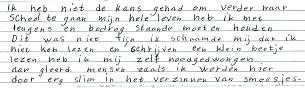 Ik heb niet de kans gehad om verder naar
School te gaan mijn hele leven heb ik met
leugens en bedrog staande moeten houden
Dit was niet fijn ik schaamde mij dat ik
niet kon lezen en schrijven een klein beetje
lezen heb ik mij zelf noodgedwongen
aan gleerd mensen zoals ik werden hier
door erg slim in het verzinnen van smoesjes.